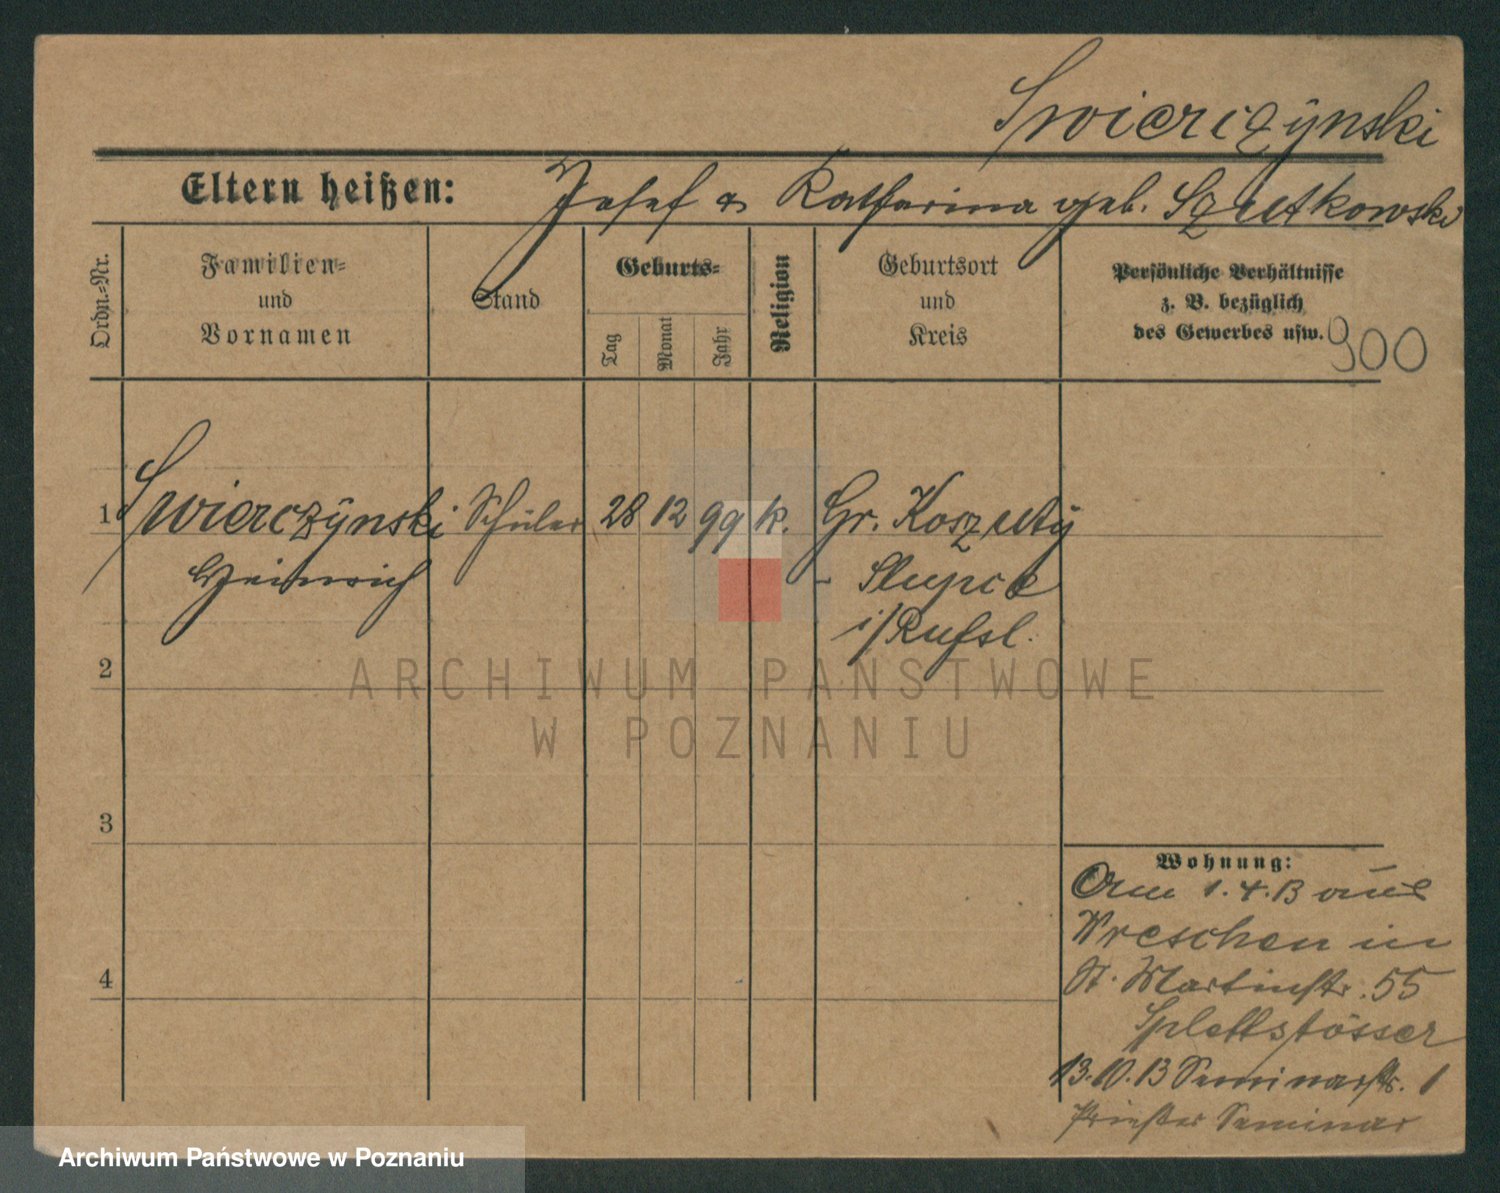 Swierczÿnski
Eltern heißen: Josef & Katharina geb. Szutkowski
Ordn.-Nr.
Familien-
und
Vornamen
Stand
Geburts-
Tag
Monat
Jahr
Religion
Geburtsort
und
Kreis
Persönliche Verhältnisse
z. B. bezüglich
des Gewerbes usw.
900
1 Swierczÿnski Schüler 28 12 99 k. Gr. Koszuty
Heinrich - Slupce
i/Rußl.
2
3
4
Wohnung:
Am 1.4.13 aus
Wreschen in
St. Martinstr. 55
Splettstösser
13.10.13 Seminarstr. 1
Priester Seminar
ARCHIWUM PAŃSTWOWE
W POZNANIU
Archiwum Państwowe w Poznaniu